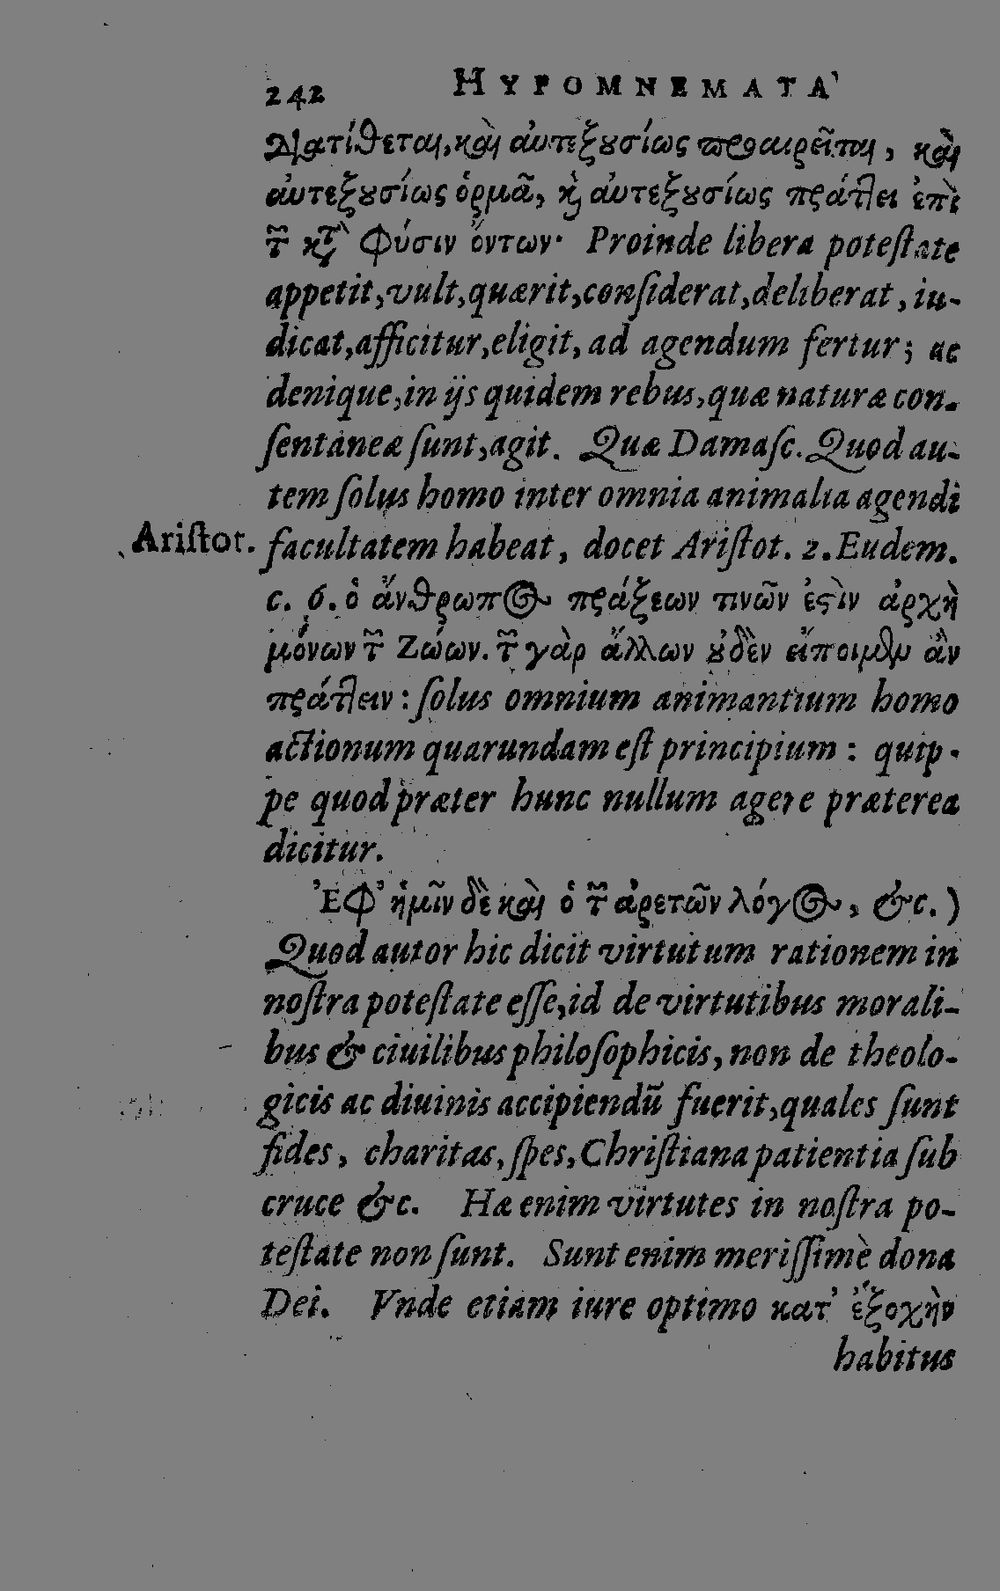 242 HYPOMNEMATA
διατίθεται, καὶ αὐτεξουσίως προαιρεῖται, καὶ
αὐτεξουσίως ὁρμᾶ, κ̀ αὐτεξουσίως πράττει ἐπὶ
τ̃ κτ̀ Φύσιν ὄντων· Proinde libera poteſtate
appetit, vult, quærit, conſiderat, deliberat, iu-
dicat, afficitur, eligit, ad agendum fertur; ac
denique, in ijs quidem rebus, quæ naturæ con-
ſentaneæ ſunt, agit. Quæ Damaſc. Quod au-
tem ſolus homo inter omnia animalia agendi
Ariſtot.
facultatem habeat, docet Ariſtot. 2. Eudem.
c. 6. ὁ ἄνθρωπος πράξεων τινῶν ἐστὶν ἀρχὴ
μόνων τ̃ ζώων. τ̃ γὰρ ἄλλων οὐδὲν εἴποιμεν ἂν
πράττειν: ſolus omnium animantium homo
actionum quarundam eſt principium: quip-
pe quod præter hunc nullum agere præterea
dicitur.
Ἐφ' ἡμῖν δὲ καὶ ὁ τ̃ ἀρετῶν λόγος, &c.)
Quod autor hic dicit virtutum rationem in
noſtra poteſtate eſſe, id de virtutibus morali-
bus & ciuilibus philoſophicis, non de theolo-
gicis ac diuinis accipiendū fuerit, quales ſunt
fides, charitas, ſpes, Chriſtiana patientia ſub
cruce &c. Hæ enim virtutes in noſtra po-
teſtate non ſunt. Sunt enim meriſſimè dona
Dei. Vnde etiam iure optimo κατ' ἐξοχὴν
habitus